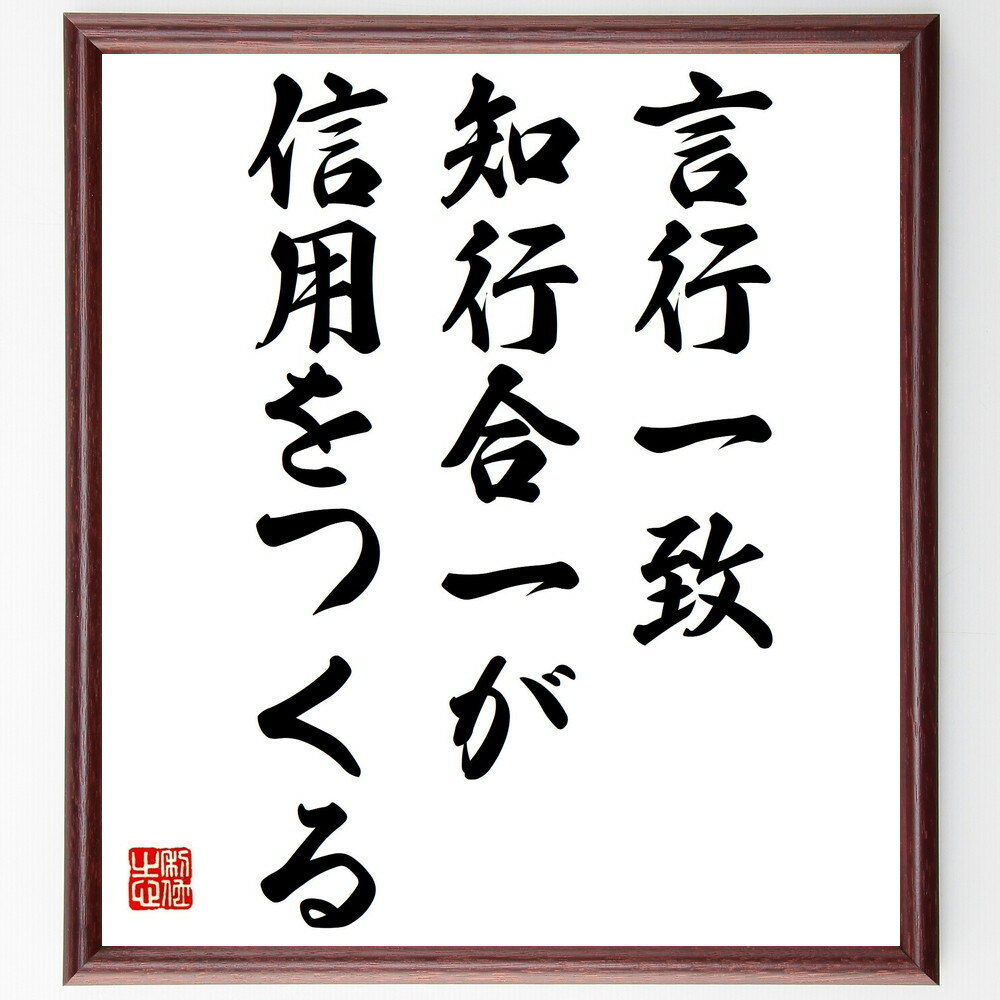 言行一致
知行合一が
信用をつくる